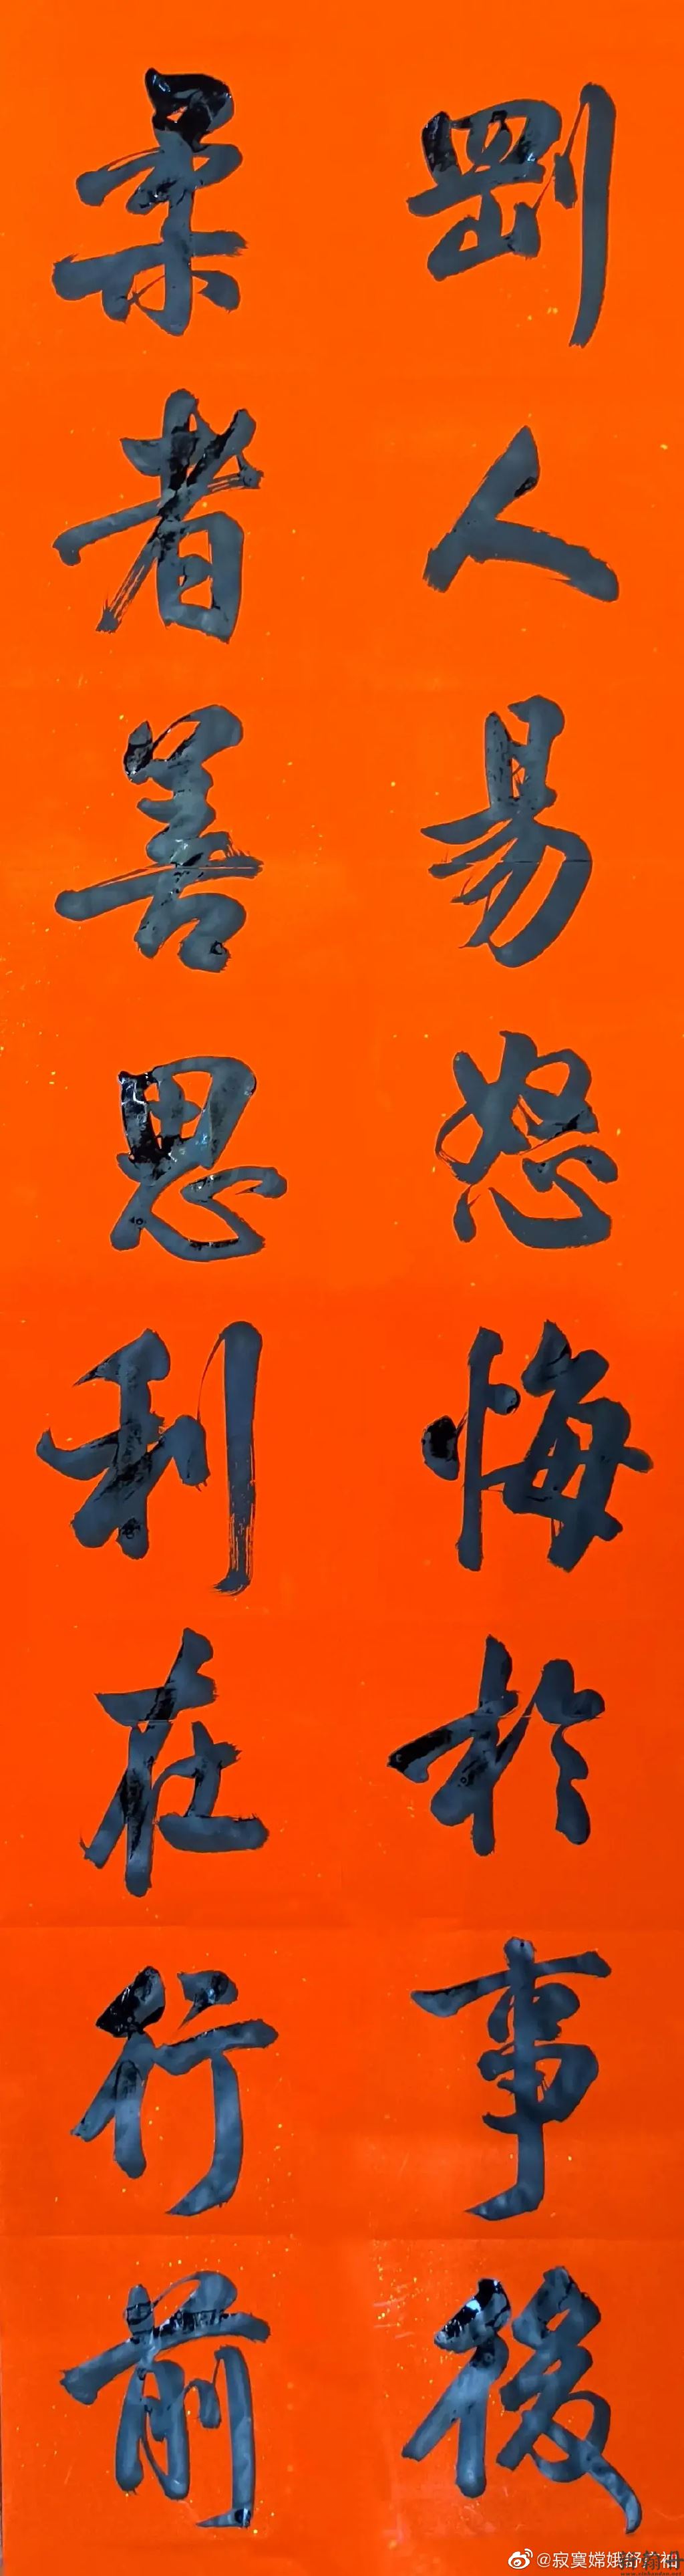 剛人易怒悔於事後
柔者善思利在行前
@寂寞嫦娥舒广袖